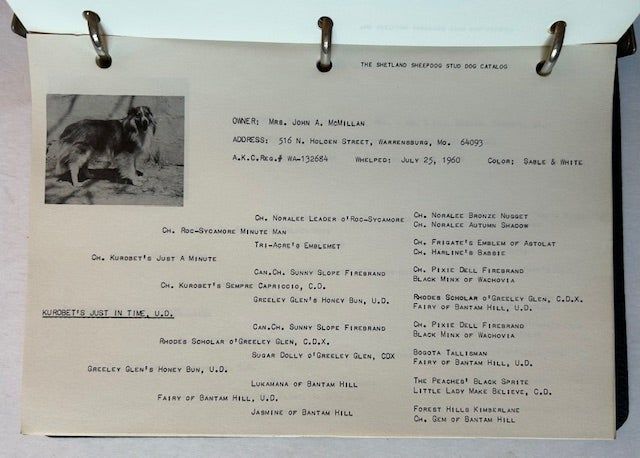 THE SHETLAND SHEEPDOG STUD DOG CATALOG
OWNER: MRS. JOHN A. MCMILLAN
ADDRESS: 516 N. HOLDEN STREET, WARRENSBURG, MO. 64093
A.K.C.REG.# WA-132684 WHELPED: JULY 25, 1960 COLOR: SABLE & WHITE
CH. NORALEE BRONZE NUGGET
CH. NORALEE LEADER O'ROC-SYCAMORE
CH. NORALEE AUTUMN SHADOW
CH. ROC-SYCAMORE MINUTE MAN
CH. FRIGATE'S EMBLEM OF ASTOLAT
TRI-ACRE'S EMBLEMET
CH. HARLINE'S BABBIE
CH. KUROBET'S JUST A MINUTE
CH. PIXIE DELL FIREBRAND
CAN.CH. SUNNY SLOPE FIREBRAND
BLACK MINX OF WACHOVIA
CH. KUROBET'S SEMPRE CAPRICCIO, C.D.
RHODES SCHOLAR O'GREELEY GLEN, C.D.X.
GREELEY GLEN'S HONEY BUN, U.D.
FAIRY OF BANTAM HILL, U.D.
KUROBET'S JUST IN TIME, U.D.
CH. PIXIE DELL FIREBRAND
CAN.CH. SUNNY SLOPE FIREBRAND
BLACK MINK OF WACHOVIA
RHODES SCHOLAR O'GREELEY GLEN, C.D.X.
BOGOTA TALLISMAN
SUGAR DOLLY O'GREELEY GLEN, CDX
FAIRY OF BANTAM HILL, U.D.
GREELEY GLEN'S HONEY BUN, U.D.
THE PEACHES' BLACK SPRITE
LUKAMANA OF BANTAM HILL
LITTLE LADY MAKE BELIEVE, C.D.
FAIRY OF BANTAM HILL, U.D.
FOREST HILLS KIMBERLANE
JASMINE OF BANTAM HILL
CH. GEM OF BANTAM HILL